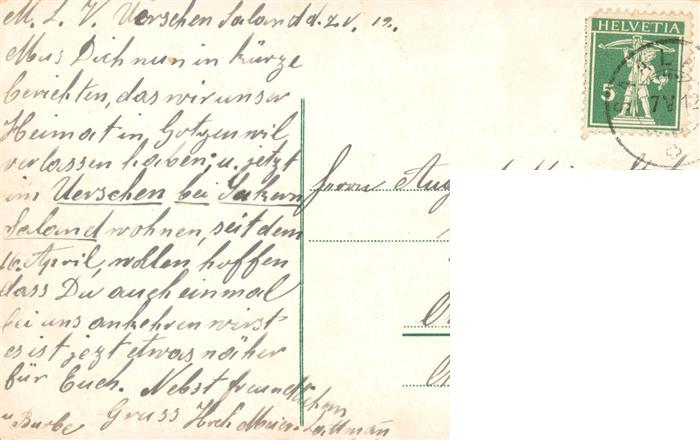 M. L. V. Uerschen Saland d. 7. V. 12.
Mus Dich nun in kürze
berichten, das wir unser
Heimat in Gotzenwil
verlassen haben, u. jetzt
im Uerschen bei
Saland wohnen, seit dem
April, wollen hoffen
dass Du auch einmal
bei uns ankehren wirst
es ist jezt etwas näher
für Euch. Nebst freundlichem
Gruss Hch Meier
HELVETIA
5
Herrn